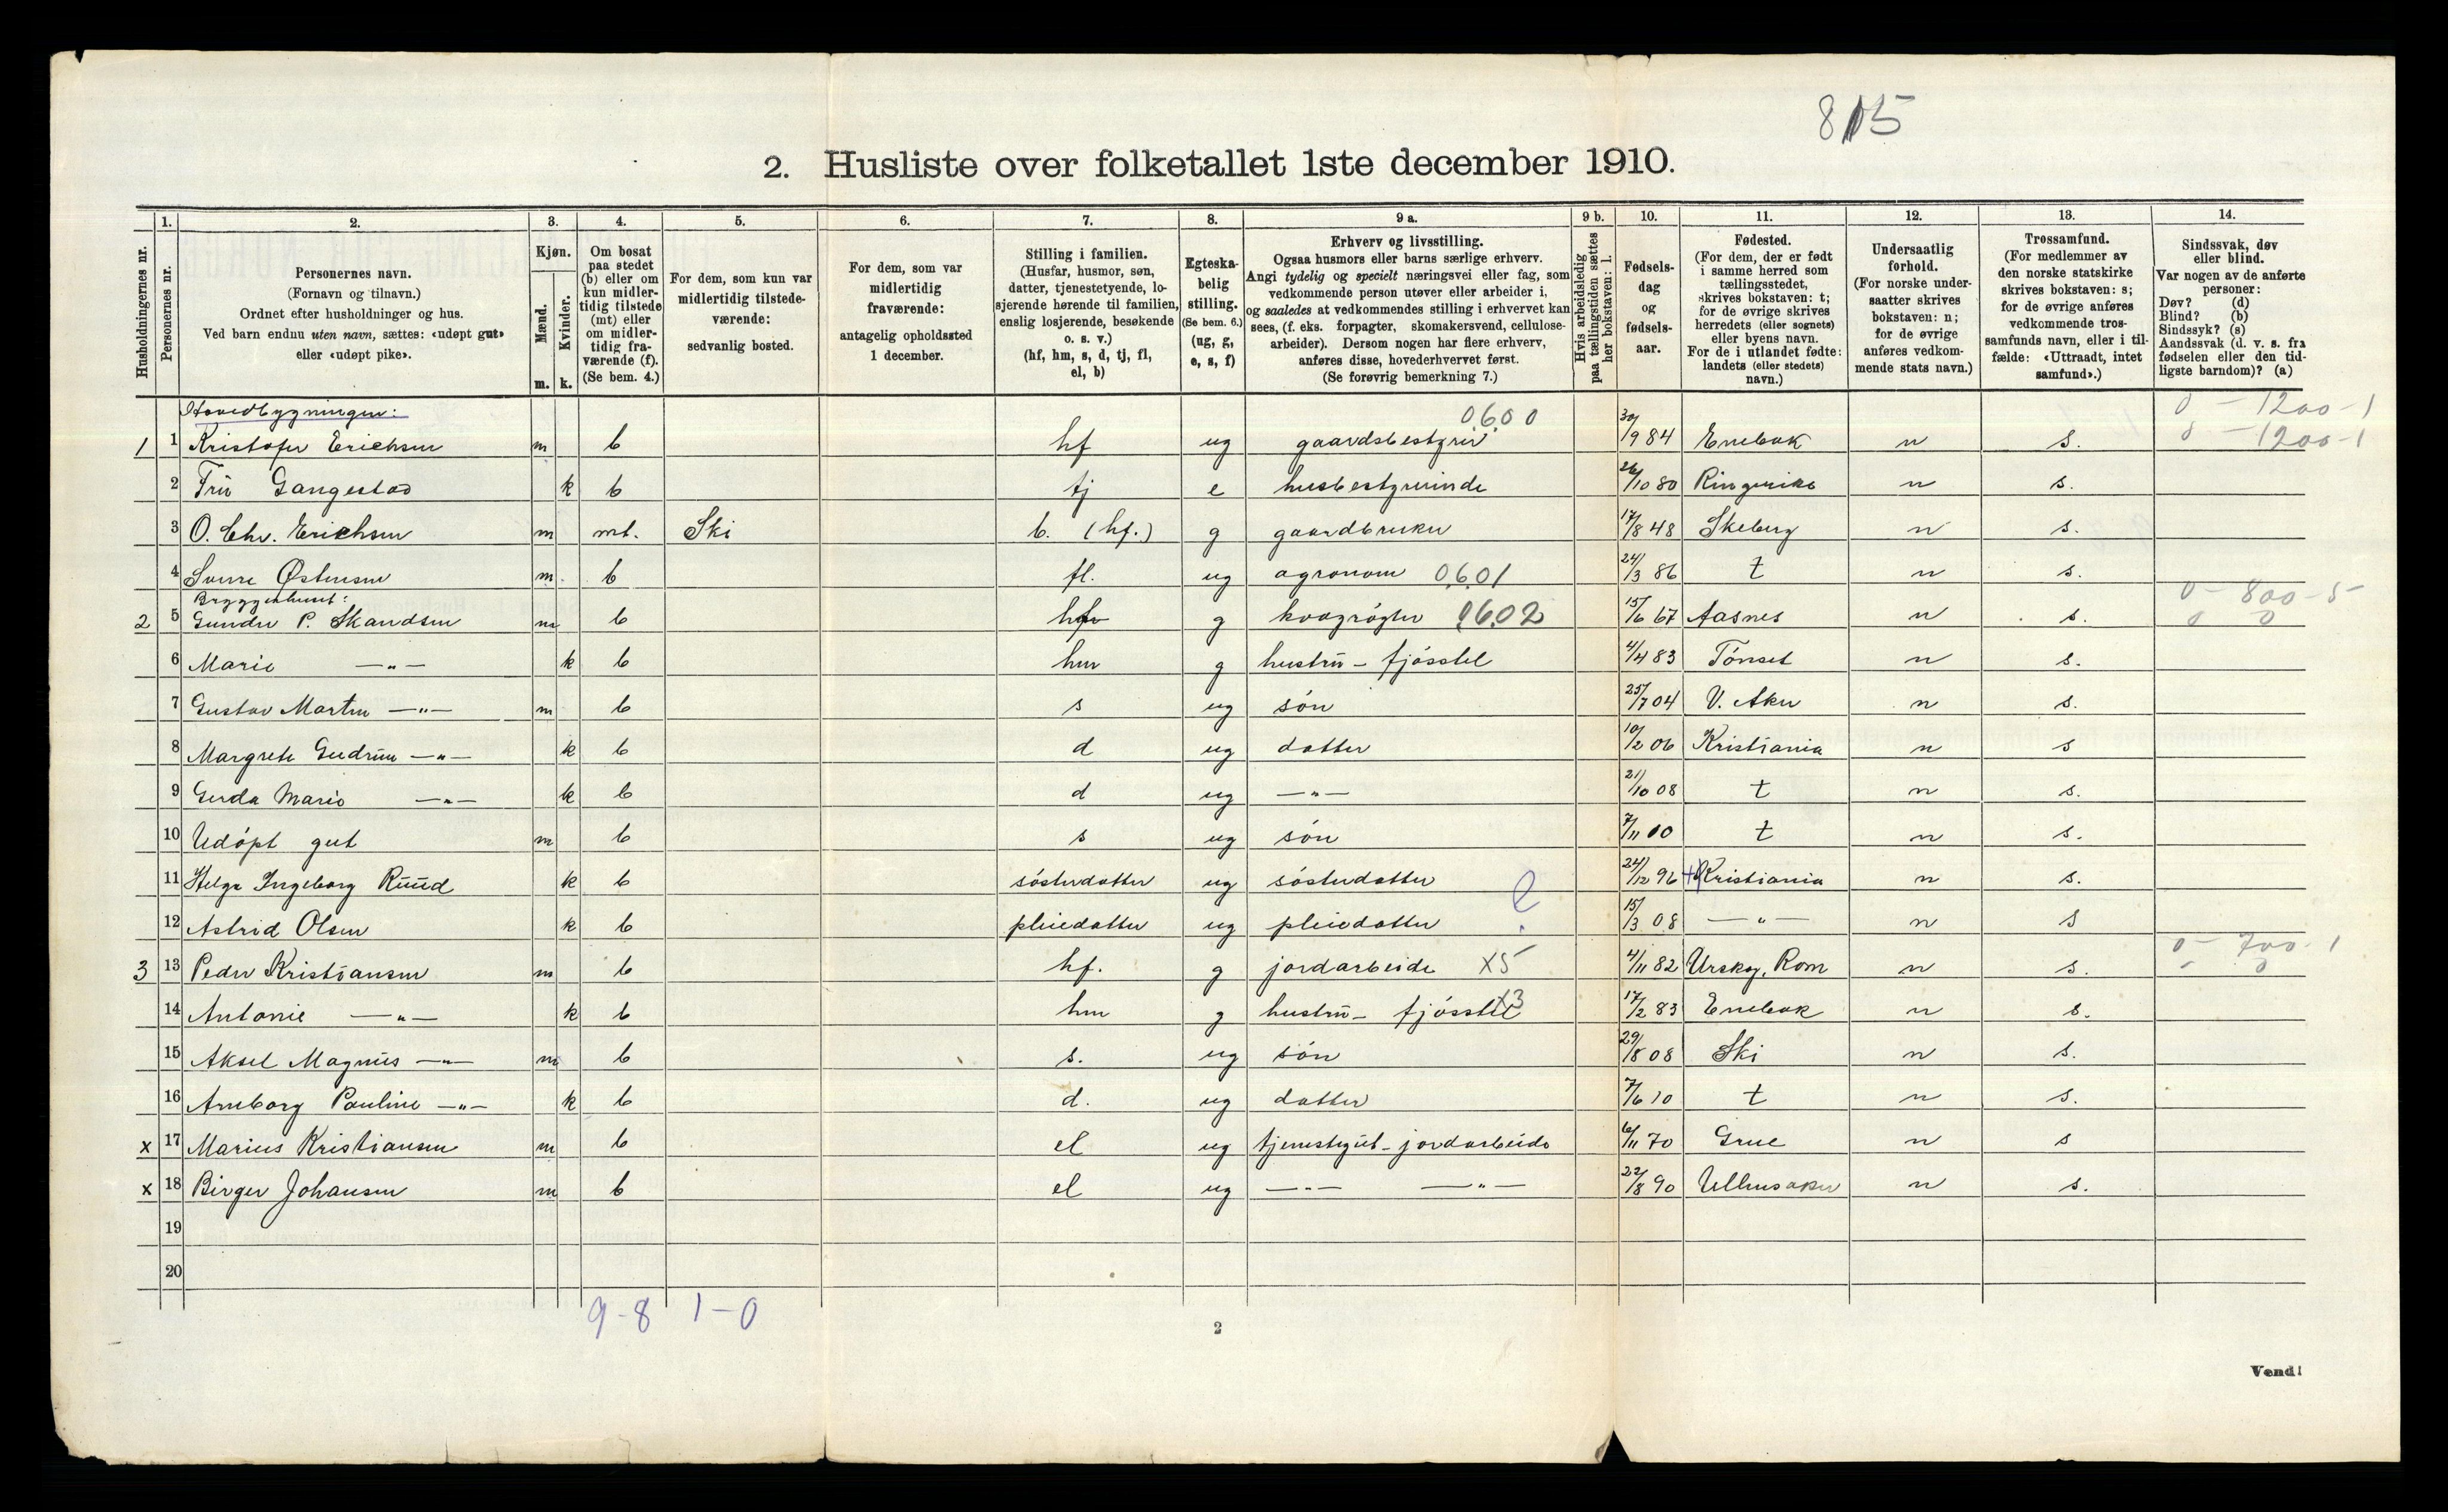 815
2. Husliste over folketallet 1ste december 1910.
Husholdningernes nr.
1. Personernes nr.
2. Personernes navn. (Fornavn og tilnavn.) Ordnet efter husholdninger og hus. Ved barn endnu uten navn, sættes: «udøpt gut» eller «udøpt pike».
3. Kjøn. Mænd. m. Kvinder. k.
4. Om bosat paa stedet (b) eller om kun midlertidig tilstede (mt) eller om midlertidig fraværende (f). (Se bem. 4.)
5. For dem, som kun var midlertidig tilstedeværende: sedvanlig bosted.
6. For dem, som var midlertidig fraværende: antagelig opholdssted 1 december.
7. Stilling i familien. (Husfar, husmor, søn, datter, tjenestetyende, losjerende hørende til familien, enslig losjerende, besøkende o. s. v.) (hf, hm, s, d, tj, fl, el, b)
8. Egteskabelig stilling. (Se bem. 6.) (ug, g, e, s, f)
9 a. Erhverv og livsstilling. Ogsaa husmors eller barns særlige erhverv. Angi tydelig og specielt næringsvei eller fag, som vedkommende person utøver eller arbeider i, og saaledes at vedkommendes stilling i erhvervet kan sees, (f. eks. forpagter, skomakersvend, cellulosearbeider). Dersom nogen har flere erhverv, anføres disse, hovederhvervet først. (Se forøvrig bemerkning 7.)
9 b. Hvis arbeidsledig paa tællingstiden sættes her bokstaven: l.
10. Fødselsdag og fødselsaar.
11. Fødested. (For dem, der er født i samme herred som tællingsstedet, skrives bokstaven: t; for de øvrige skrives herredets (eller sognets) eller byens navn. For de i utlandet fødte: landets (eller stedets) navn.)
12. Undersaatlig forhold. (For norske undersaatter skrives bokstaven: n; for de øvrige anføres vedkommende stats navn.)
13. Trossamfund. (For medlemmer av den norske statskirke skrives bokstaven: s; for de øvrige anføres vedkommende trossamfunds navn, eller i tilfælde: «Uttraadt, intet samfund».)
14. Sindssvak, døv eller blind. Var nogen av de anførte personer: Døv? (d) Blind? (b) Sindssyk? (s) Aandssvak (d. v. s. fra fødselen eller den tidligste barndom)? (a)
Hovedbygningen: 0600 0 - 1200 - 1
1 1 Kristofer Erichsen m b hf ug gaardsbestyrer 30/9 84 Enebak n s. 0 - 1200 - 1
2 Fru Gangestad k b tj e husbestyrerinde 26/10 80 Ringerike n s.
3 O. Chr. Erichsen m mt. Ski b. (hf.) g gaardbruker 17/8 48 Skeberg n s.
4 Sverre Østensen m. b fl. ug agronom 0601 24/3 86 t n s.
Bryggerhuset: 0 - 800 - 5
2 5 Gunder P. Skandsen m b hf g kvægrøgter 0602 15/6 67 Aasnes n s. 0 0
6 Marie —"— k b hm g hustru - fjøsstel 4/4 83 Tønset n s.
7 Gustav Martin —"— m b s ug søn 25/7 04 V. Aker n s.
8 Margrete Gudrun —"— k b d ug datter 10/2 06 Kristiania n s
9 Gerda Marie —"— k b d ug —"— 21/10 08 t n s.
10 Udøpt gut m b s ug søn 7/11 10 t n s.
11 Helga Ingeborg Ruud k b søsterdatter ug søsterdatter 24/12 96 Kristiania n s.
12 Astrid Olsen k b pleiedatter ug pleiedatter 15/3 08 —"— n s
3 13 Peder Kristiansen m b hf. g jordarbeide X5 4/11 82 Urskog, Rom n s. 0 - 700 - 1
14 Antonie —"— k b hm g hustru - fjøsstel X3 17/2 83 Enebak n s.
15 Aksel Magnus —"— m b s. ug søn 29/8 08 Ski n s.
16 Arnborg Pauline —"— k b d. ug datter 7/6 10 t n s.
x 17 Marius Kristiansen m b el ug tjenestegut - jordarbeide 6/11 70 Grue n s
x 18 Birger Johansen m b el ug —"— —"— 22/8 90 Ullensaker n s.
19
20
9 - 8 1 - 0
2
Vend!